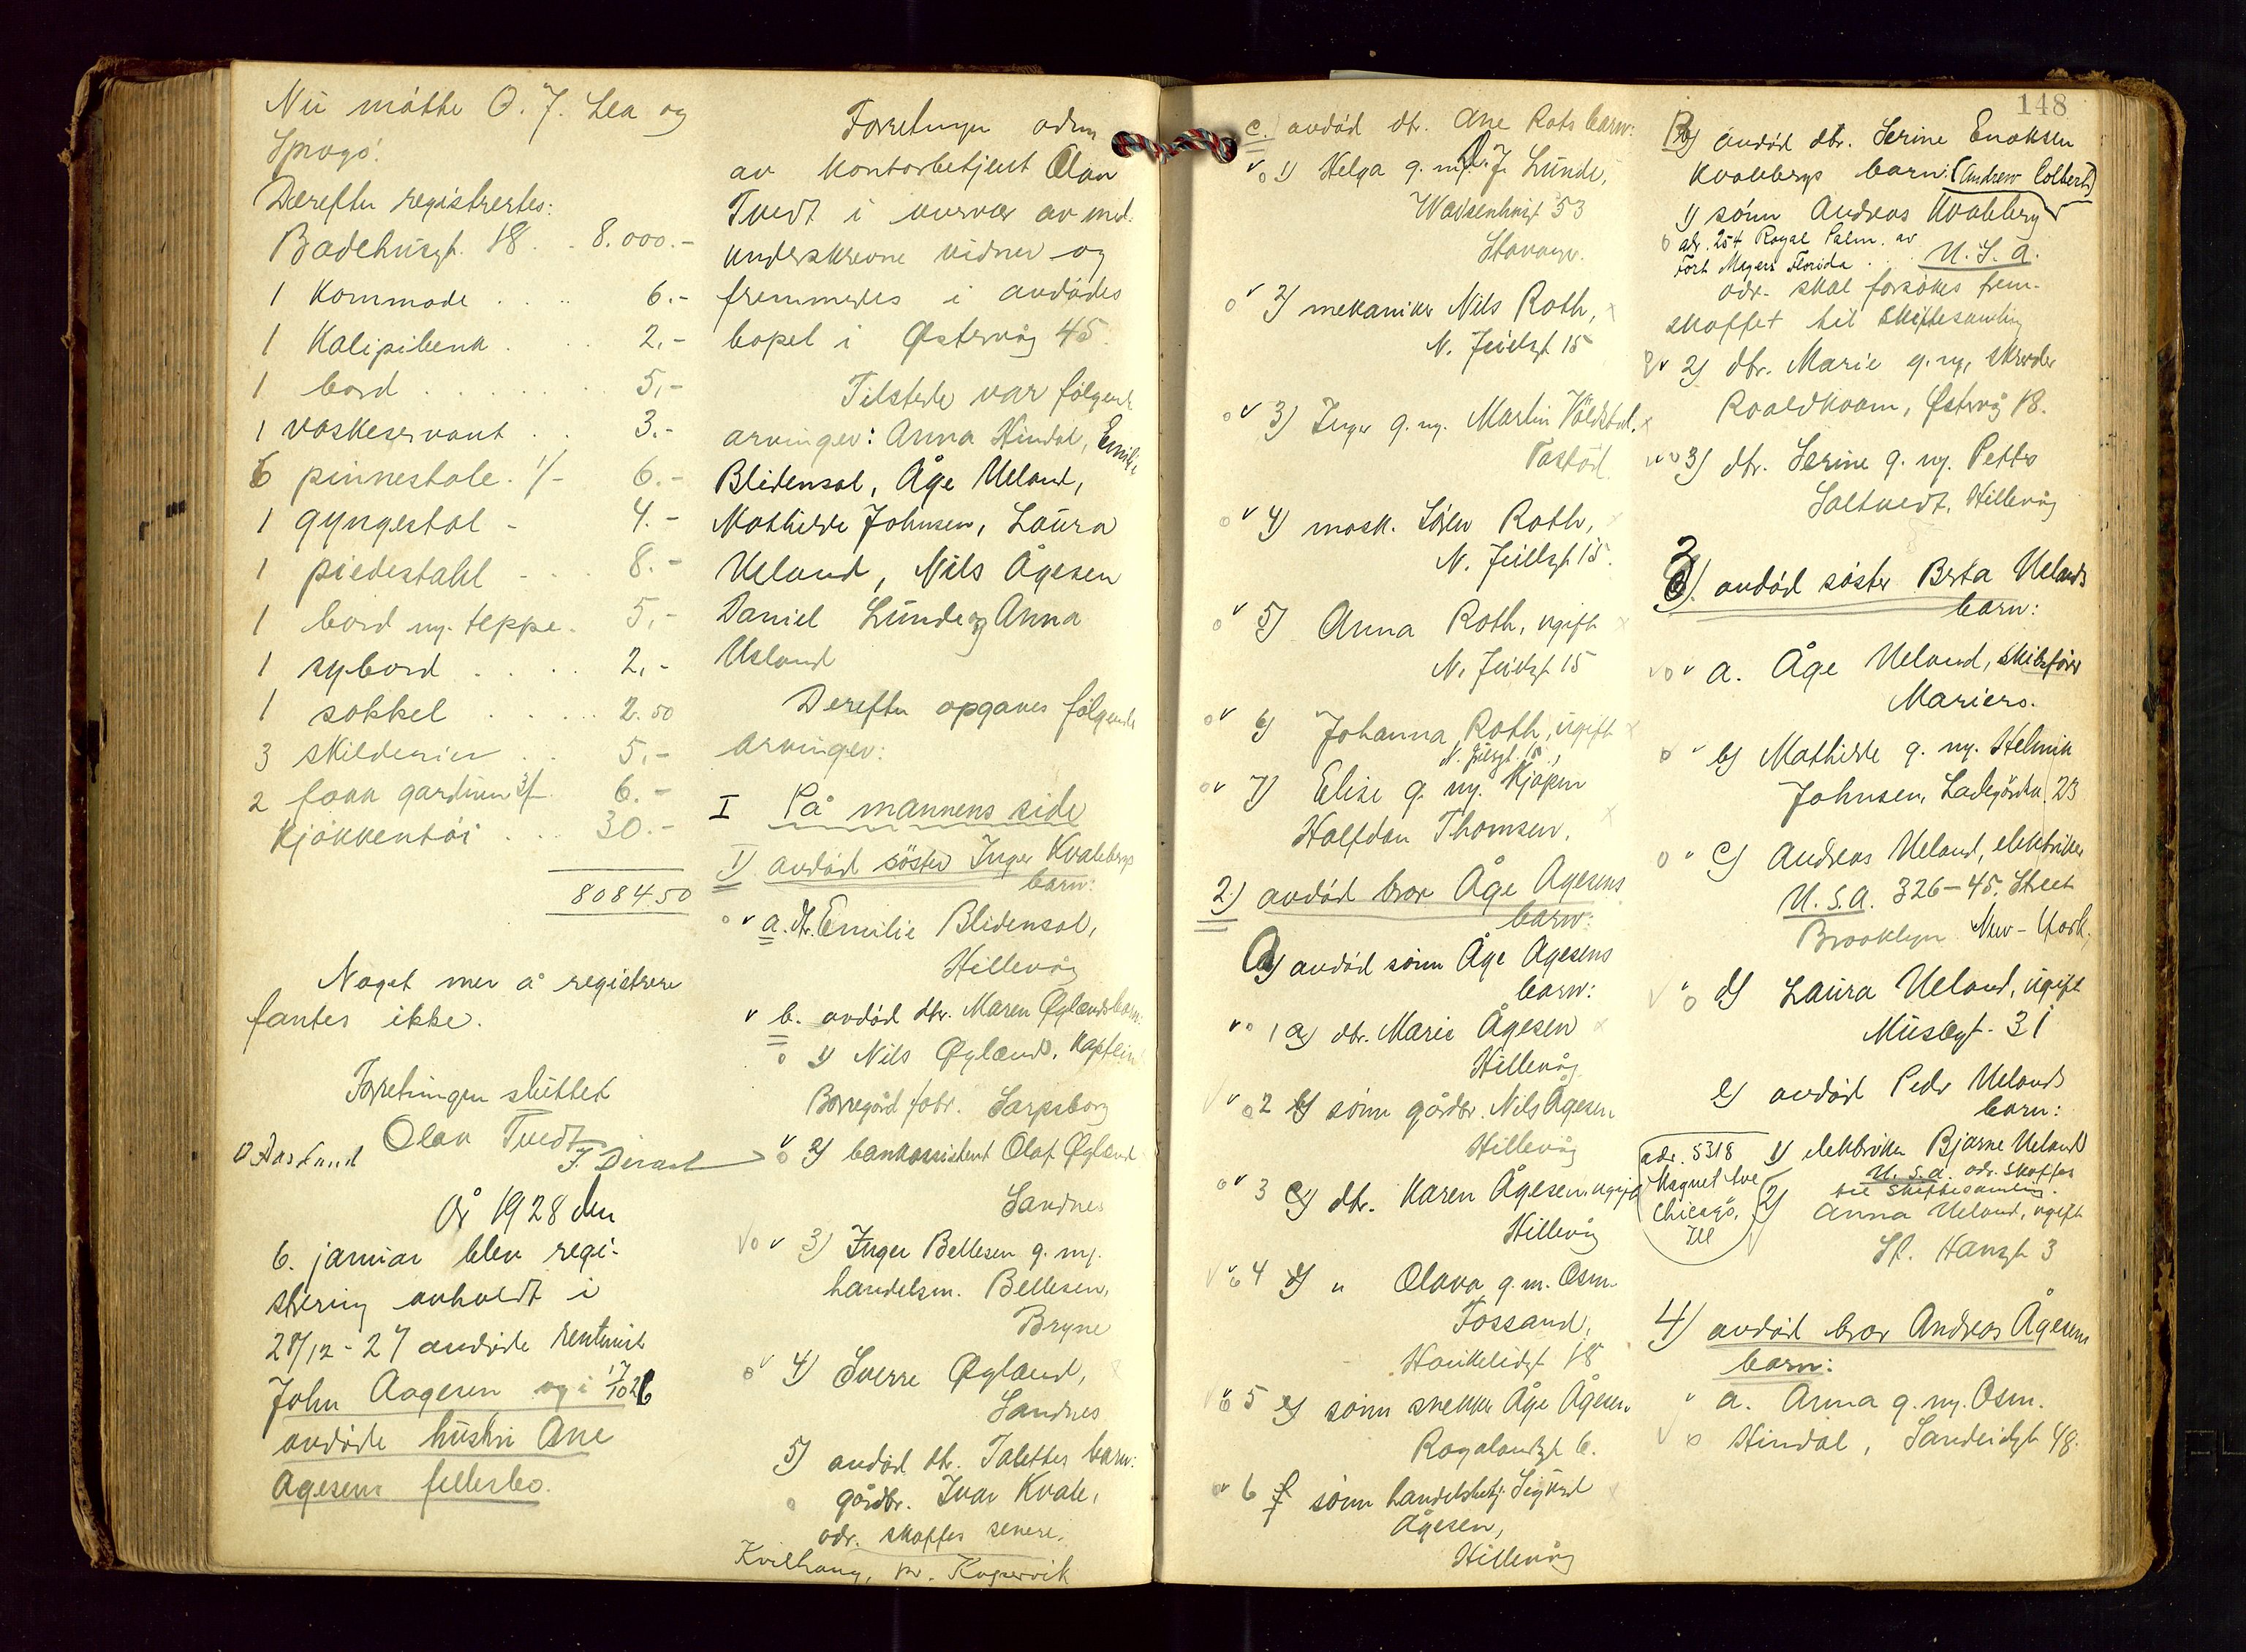 Nu møtte O. J. Lea og
Derefter registrertes:
Badehusgt. 18 . . 8.000.-
1 Kommode . . . 6.-
1 Kalipibenk . . . 2.-
1 bord . . . . . 5,-
1 vaskeservant . . 3.-
6 pinnestole. 1/- 6.-
1 gyngestol - 4.-
1 piedestahl - . . 8.-
1 bord m. teppe. 5,-
1 sybord . . . . 2,-
1 sokkel . . . . . 2.50
3 skilderier . . 5,-
2 fakk gardiner 3/- 6.-
Kjøkkentøi . . . 30.-
8084.50
Noget mer å registrere
fantes ikke.
Forretningen sluttet
Olav Tvedt
År 1928 den
6. januar blev regi-
strering avholdt i
28/12-27 avdøde rentenist
John Aagesen og i 17/10 26
avdøde hustru Ane
Agesens fellesbo.
Forretningen adm.
av kontorbetjent Olav
Tvedt i nærvær av med-
underskrevne vidner og
fremmedes i avdødes
bopel i Østervåg 45.
Tilstede var følgende
arvinger: Anna Hindal, Emilie
Blidensol, Åge Ueland,
Mathilde Johnsen, Laura
Ueland, Nils Ågesen
Daniel Lunde og Anna
Ueland
Derefter opgaves følgende
arvinger:
I På mannens side
1) avdød søster Inger Kvalebergs
barn:
a. dtr. Emilie Blidensol,
Hillevåg
b. avdød dtr. Maren Øglænds barn.
1) Nils Øglænd, Kaptein
Borregård fabr. Sarpsborg
2) bankassistent Olaf Øglænd
Sandnes
3) Inger Bellesen g. m.
handelsm. Bellesen,
Bryne
4) Sverre Øglænd,
Sandnes
5) avdød dtr. Talettes barn:
gårdbr. Ivar Kvale,
adr. skaffes senere.
Kvilhaug, pr. Kopervik
c.) avdød dtr. Ane Rots barn:
1) Helga g. m. D. J. Lunde,
Waisenhusgt 53
Stavanger.
2) mekaniker Nils Roth,
N. Juelsgt 15
3) Inger g. m. Martin Voldstad.
Tastad
4) mask. Søren Roth,
N. Juelsgt 15.
5) Anna Roth, ugift
N. Juelsgt 15
6) Johanna Roth, ugift
N. Juelsgt. 15.,
7) Elise g. m. Kjøpm
Halfdan Thomsen.
2) avdød bror Åge Agesens
barn:
A) avdød sønn Åge Agesens
barn:
1 a) dtr. Marie Ågesen
Hillevåg
2 b) sønn gårdbr. Nils Ågesen
Hillevåg
3 c) dtr. Karen Ågesen ugift
Hillevåg
4 d) " Olava g. m. Osm.
Fossand,
Haukelidgt 18
5 e) sønn snekker Åge Ågesen
Rogalandsgt 6.
6 f sønn handelsbetj. Sigurd
Ågesen,
Hillevåg
148
B) avdød dtr. Serine Enoksen
Kvalebergs barn: (Andrew Colbert)
1) sønn Andreas Kvaleberg
adr. 254 Royal Palm. av
Fort Mayers Florida . . . U. S. A.
adr. skal forsøkes frem-
skaffet til skiftesamling
2) dtr. Marie g. m. skredder
Roaldkvam, Østervåg 18.
3) dtr. Serine g. m. Petter
Saltvedt, Hillevåg
3) avdød søster Berta Uelands
barn:
a. Åge Ueland, skibsfører
Mariero.
b) Mathilde g. m. Helmik
Johnsen, Ladegårdsv. 23
c) Andreas Ueland, elektriker
U. S. A. 326-45. Street
Brooklyn New-York,
d) Laura Ueland, ugift
Musegt. 31
e) avdød Peder Uelands
barn:
1) elektriker Bjarne Ueland
U. S. A. adr. skaffes
til skiftesamling.
adr. 5318
Magnet Ave
Chicago,
Ill
2) Anna Ueland, ugift
St. Hansgt 3
4) avdød bror Andreas Ågesens
barn:
a. Anna g. m. Osm.
Hindal, Sandeidgt 48.